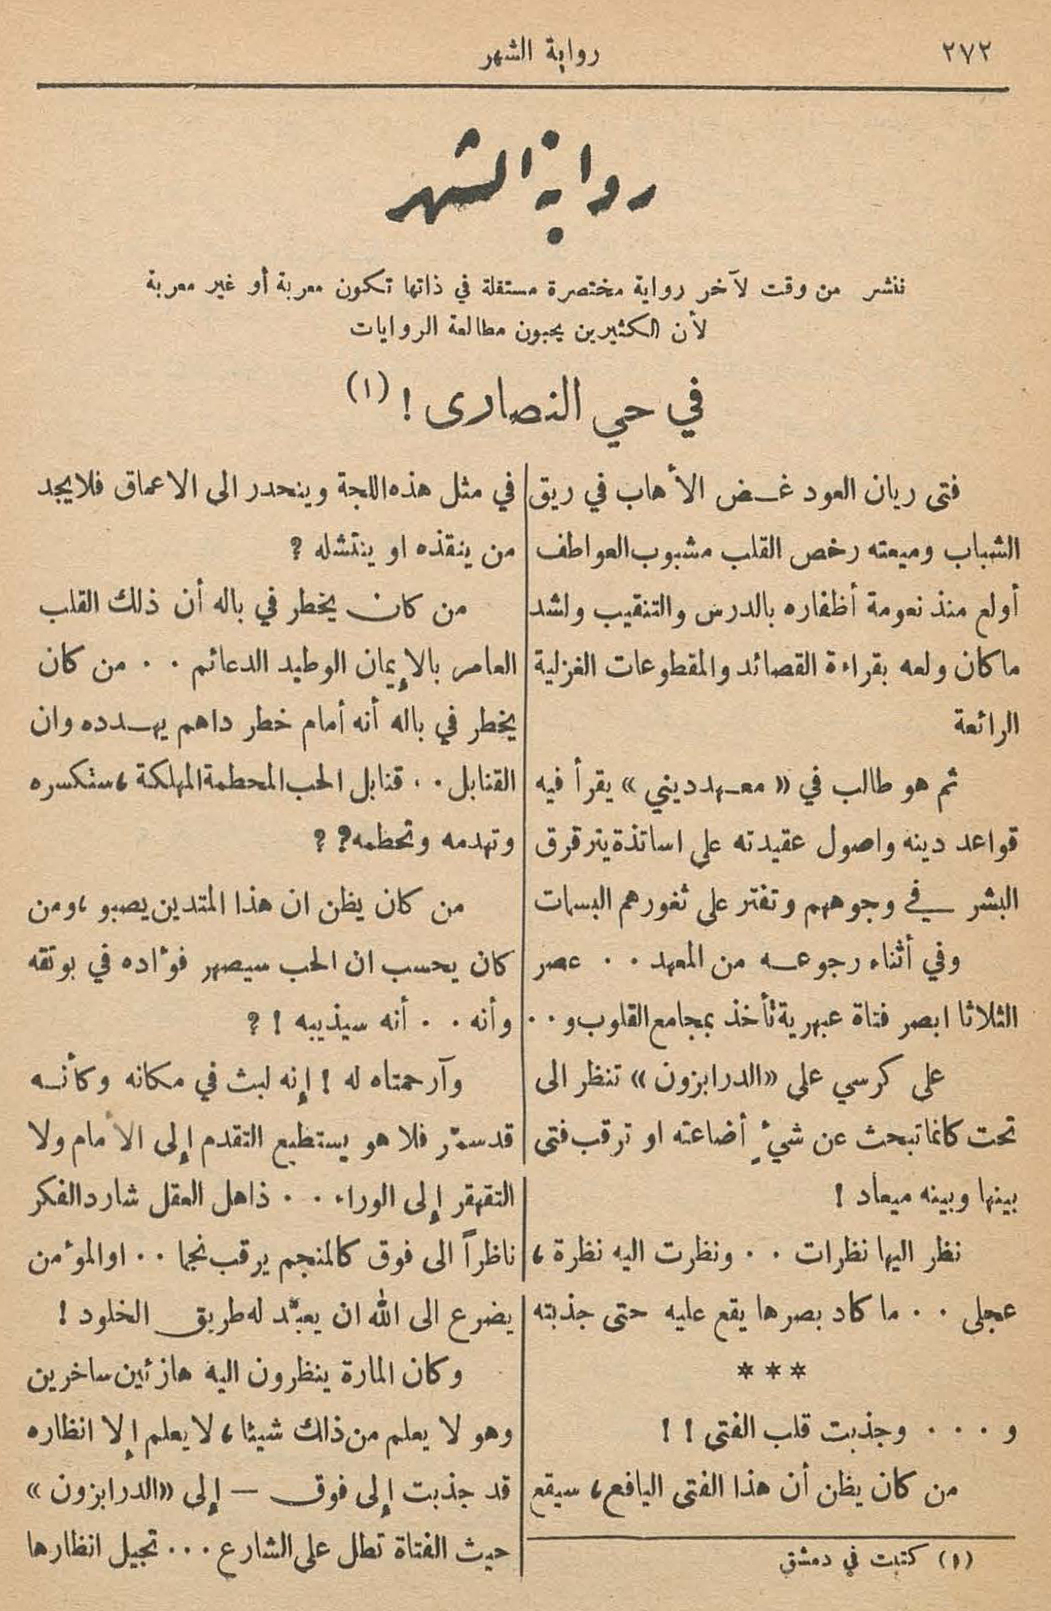 ٢٧٢
رواية الشهر
رواية الشهر
ننشر من وقت لآخر رواية مختصرة مستقلة في ذاتها تكون معربة أو غير معربة
لأن الكثيرين يحبون مطالعة الروايات
في حي النصارى ! (١)
فتى ريان العود غض الأهاب في ريق
الشباب وميعته رخص القلب مشبوب العواطف
أولع منذ نعومة أظفاره بالدرس والتنقيب ولشد
ما كان ولعه بقراءة القصائد والمقطوعات الغزلية
الرائعة
ثم هو طالب في « معهد ديني » يقرأ فيه
قواعد دينه واصول عقيدته على اساتذة يترقرق
البشر في وجوههم وتفتر على ثغورهم البسمات
وفي أثناء رجوعه من المعهد ٠ ٠ عصر
الثلاثا ابصر فتاة عبهرية تأخذ بمجامع القلوب و ٠ ٠
على كرسي على «الدرابزون » تنظر الى
تحت كانما تبحث عن شيءٍ أضاعته او ترقب فتى
بينها وبينه ميعاد !
نظر اليها نظرات ٠ ٠ ونظرت اليه نظرة ،
عجلى ٠ ٠ ما كاد بصرها يقع عليه حتى جذبته
* * *
و ٠ ٠ ٠ وجذبت قلب الفتى ! !
من كان يظن أن هذا الفتى اليافع ، سيقع
(١) كتبت في دمشق
في مثل هذه اللجة وينحدر الى الاعماق فلا يجد
من ينقذه او ينتشله ؟
من كان يخطر في باله أن ذلك القلب
العامر بالإيمان الوطيد الدعائم ٠ ٠ من كان
يخطر في باله أنه أمام خطر داهم يهدده وان
القنابل ٠ ٠ قنابل الحب المحطمة المهلكة ، ستكسره
وتهدمه وتحطمه؟ ؟
من كان يظن ان هذا المتدين يصبو ، ومن
كان يحسب ان الحب سيصهر فؤاده في بوتقه
وأنه ٠ ٠ أنه سيذيبه ! ؟
وآرحمتاه له ! إنه لبث في مكانه وكأنه
قد سمّر فلا هو يستطيع التقدم إلى الأمام ولا
التقهقر إلى الوراء ٠ ٠ ٠ ذاهل العقل شارد الفكر
ناظراً الى فوق كالمنجم يرقب نجما ٠ ٠ او المؤمن
يضرع الى الله ان يعبّد له طريق الخلود !
وكان المارة ينظرون اليه هازئين ساخرين
وهو لا يعلم من ذلك شيئا ، لا يعلم إلا انظاره
قد جذبت إلى فوق — إلى «الدرابزون »
حيث الفتاة تطل على الشارع ٠٠٠ تجيل انظارها